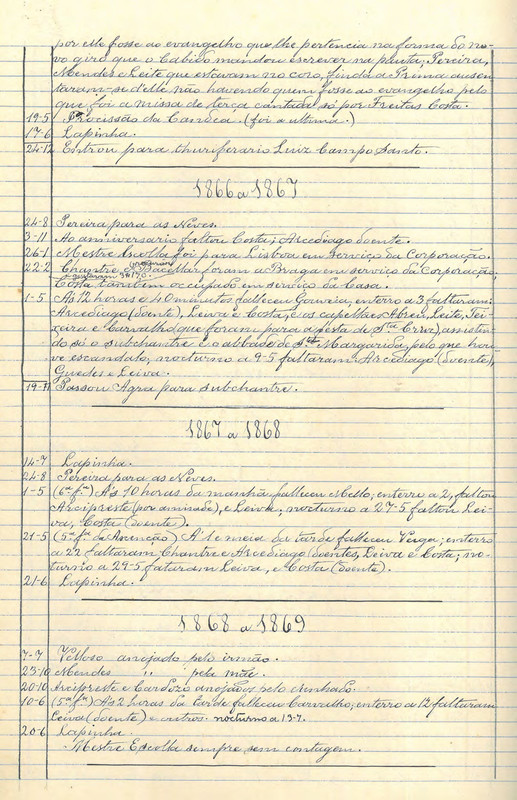 por elle fosse ao evangelho que lhe pertencia na forma do no-
vo giro que o Cabido mandou escrever na planta; Pereira,
Mendes e Leite que estavam no coro, finda a Prima ausen-
taram-se d'elle não havendo quem fosse ao evangelho pelo
que foi a missa de terça cantada só por Freitas Costa.
19-5 Procissão da Candea. (foi a ultima.)
17-6 Lapinha.
24-12 Entrou para thuriferario Luiz Campo Santo.
1866 a 1867
24-8 Pereira para as Neves.
3-11 Ao anniversario faltou Costa; Arcediago doente.
26-1 Mestre Escolla foi para Lisboa em serviço da Corporação.
22-2 Chantre e Bacellar foram a Braga em serviço da Corporação;
Costa tambem occupado em serviço da Casa.
1-5 Ás 12 horas e 40 minutos falleceu Gouveia, enterro a 3 faltaram:
Arcediago (doente), Leiva e Costa, e os capellães Abreu, Leite, Tei-
xeira e Carvalho que foram para a festa de Sta Cruz) assistin-
do só o subchantre e o abbade de Sta Margarida, pelo que hou-
ve escandalo; nocturno a 9-5 faltaram: Arcediago (doente),
Guedes e Leiva.
19-11 Passou Agra para subchantre.
1867 a 1868
14-7 Lapinha.
24-8 Pereira para as Neves.
1-5 (6ª fra) Ás 10 horas da manhã falleceu Mello; enterro a 2, faltou
Arcipreste (por amisade), e Leiva; nocturno a 27-5 faltou Lei-
va, Costa (doente).
21-5 (5ª fra da Ascenção) Á 1 e meia da tarde falleceu Verga; enterro
a 22 faltaram Chantre e Arcediago doentes, Leiva e Costa; no-
turno a 29-5 fataram Leiva, e Costa (doente).
21-6 Lapinha.
1868 a 1869
7-7 Velloso anojado pelo irmão.
23-10 Mendes " pela mãe.
20-10 Arcipreste e Cardozo anojados pelo cunhado.
10-6 (5ª fra) Ás 2 horas da tarde falleceu Carvalho; enterro a 12 faltaram
Leiva (doente) e outros. nocturno a 13-7.
20-6 Lapinha.
Mestre Escolla sempre sem contagem.